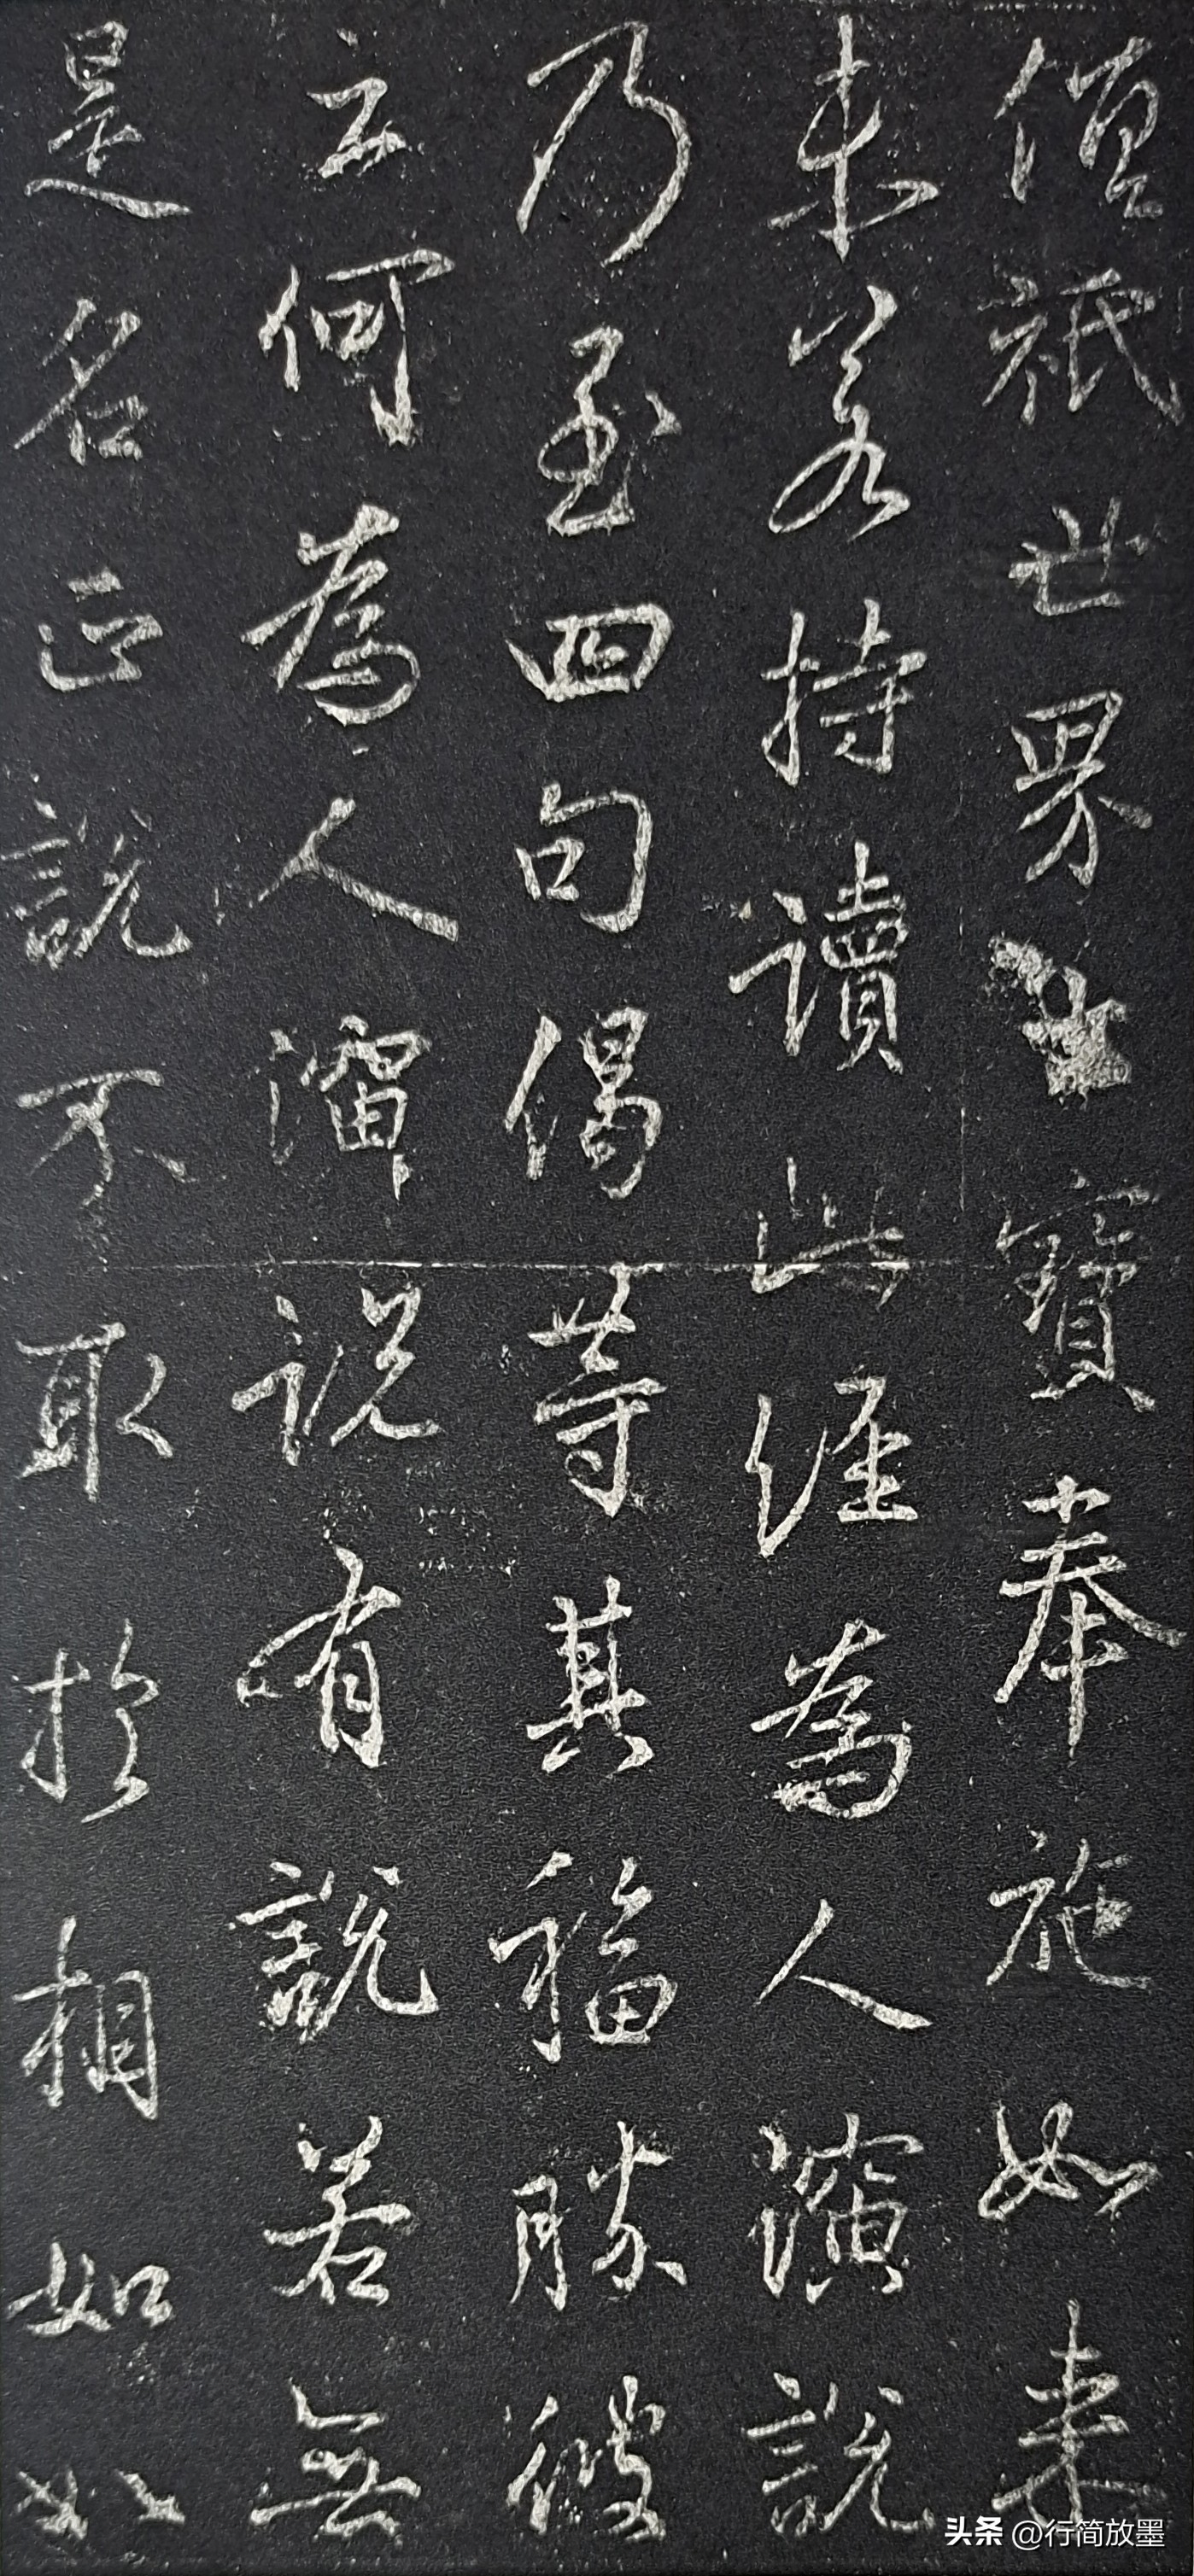 僧祇世界寶奉施如来
未若持讀此經為人演說
乃至四句偈等其福勝彼
云何為人演說有說若無
是名正說不取於相如如
头条 @行简放墨